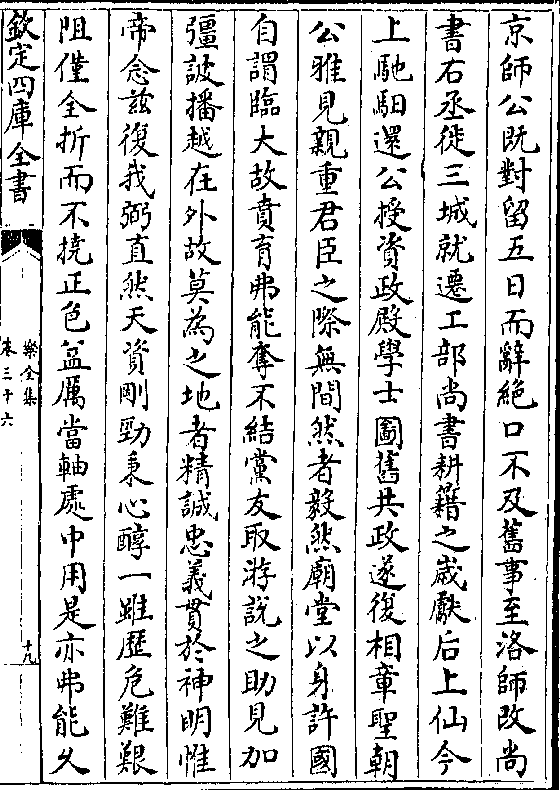 京師公既對留五日而辭絶口不及舊事至洛師改尚
書右丞徙三城就遷工部尚書耕籍之歳獻后上仙今
上馳馹還公授資政殿學士圖舊共政遂復相章聖朝
公雅見親重君臣之際無間然者毅然廟堂以身許國
自謂臨大故賁育弗能奪不結黨友取游説之助見加
彊詖播越在外故莫為之地者精誠忠義貫於神明惟
帝念兹復我弼直然天資剛勁秉心醇一雖歴危難艱
阻僅全折而不撓正色益厲當軸處中用是亦弗能乆
欽定四庫全書
樂全集
卷三十六
十九